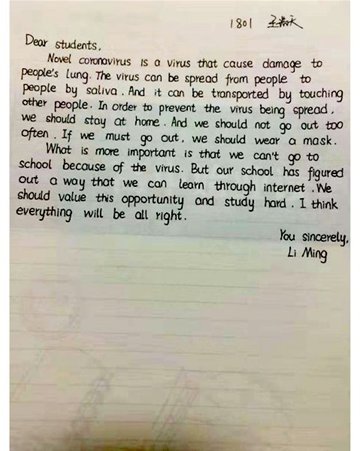 1801
Dear students,
Novel coronavirus is a virus that cause damage to
people's lung. The virus can be spread from people to
people by saliva. And it can be transported by touching
other people. In order to prevent the virus being spread,
we should stay at home. And we should not go out too
often. If we must go out, we should wear a mask.
What is more important is that we can't go to
school because of the virus. But our school has figured
out a way that we can learn through internet. We
should value this opportunity and study hard. I think
everything will be all right.
You sincerely,
Li Ming